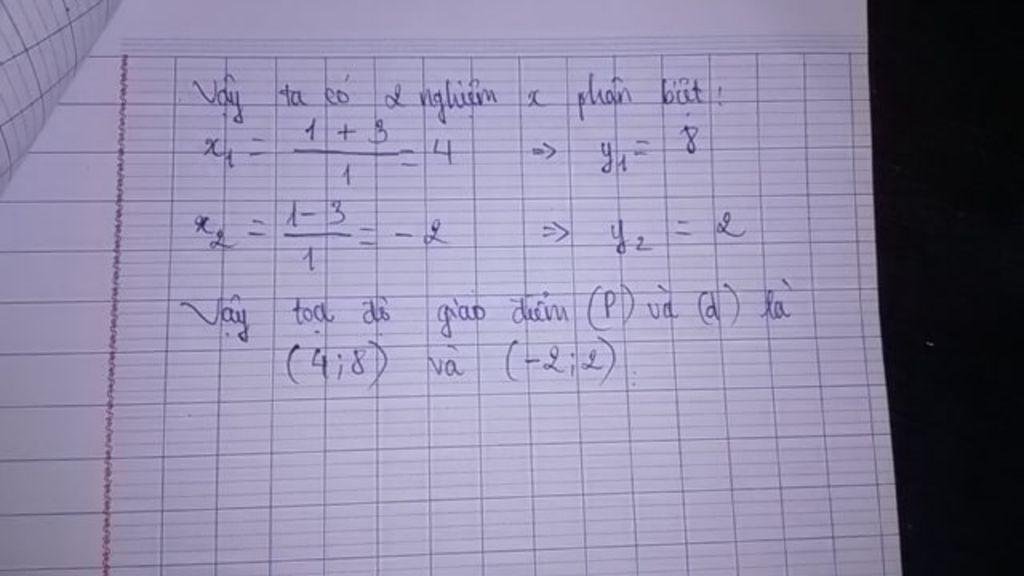 Vậy ta có 2 nghiệm x phân biệt:
x₁ = (1 + 3)/1 = 4 => y₁ = 8
x₂ = (1 - 3)/1 = -2 => y₂ = 2
Vậy toạ độ giao điểm (P) và (d) là
(4;8) và (-2;2).